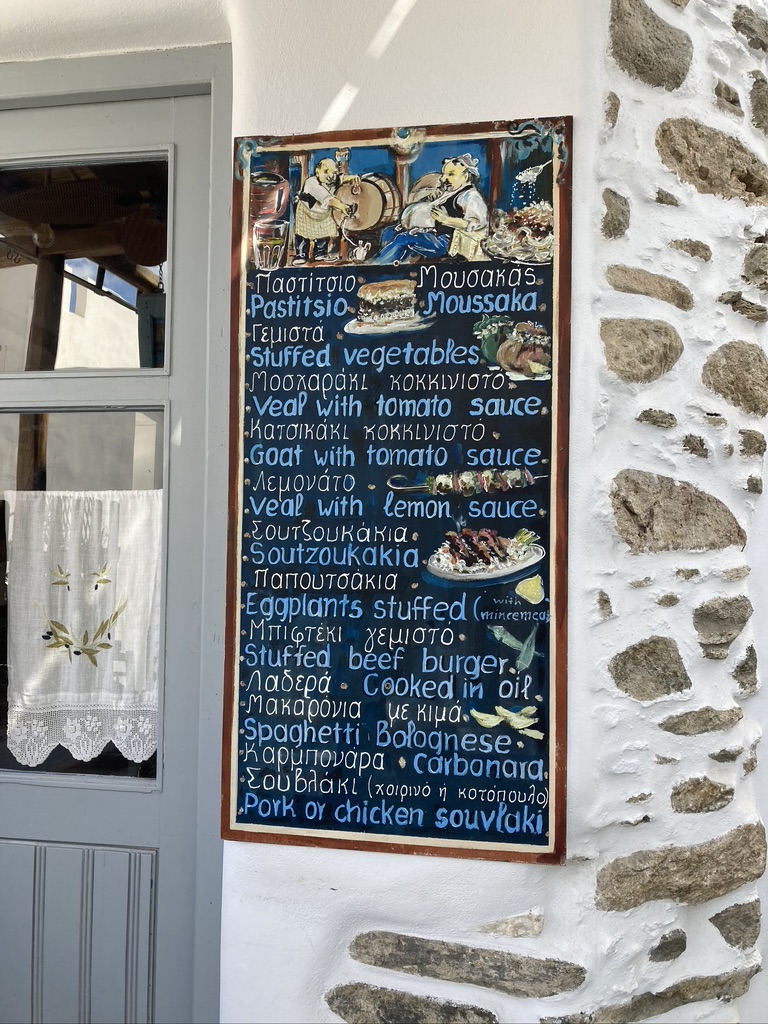 Παστίτσιο Μουσακάς
Pastitsio Moussaka
Γεμιστά
Stuffed vegetables
Μοσχαράκι κοκκινιστό
Veal with tomato sauce
Κατσικάκι κοκκινιστό
Goat with tomato sauce
Λεμονάτο
Veal with lemon sauce
Σουτζουκάκια
Soutzoukakia
Παπουτσάκια
Eggplants stuffed (with mincemeat
Μπιφτέκι γεμιστό
Stuffed beef burger
Λαδερά Cooked in oil
Μακαρόνια με κιμά
Spaghetti Bolognese
Καρμπονάρα Carbonara
Σουβλάκι (χοιρινό ή κοτόπουλο)
Pork or chicken souvlaki